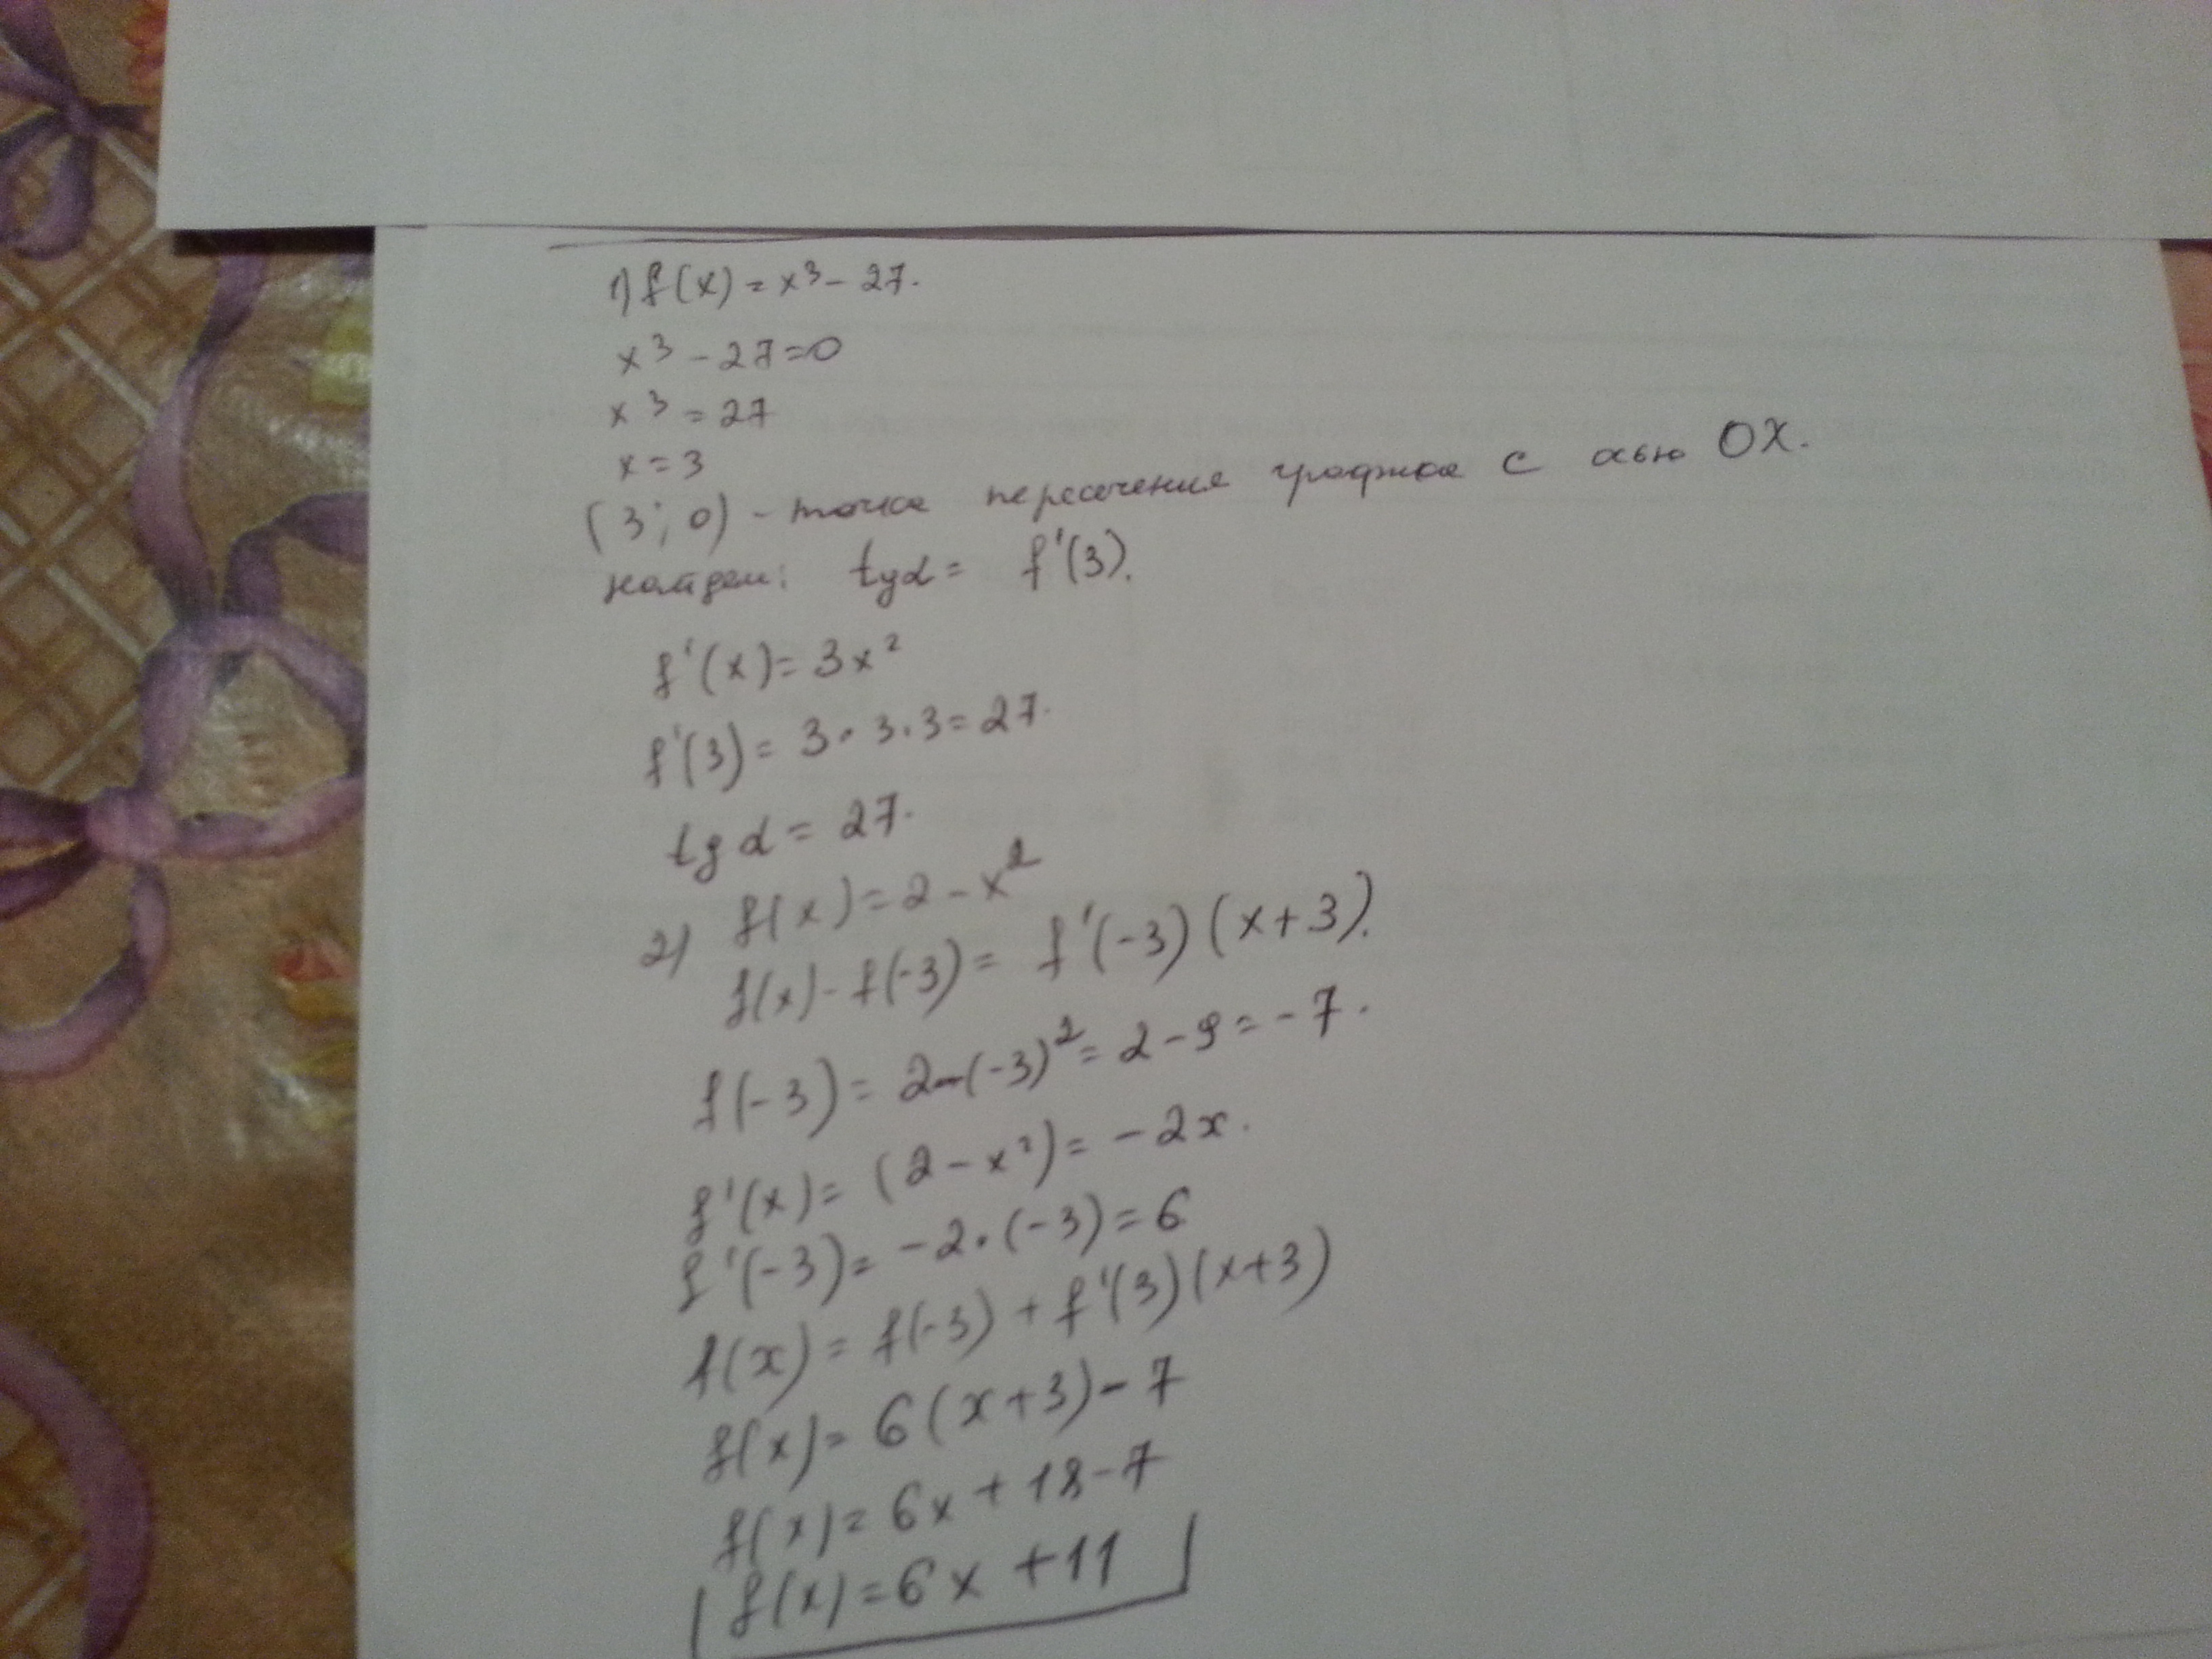 1) f(x) = x³ - 27.
x³ - 27 = 0
x³ = 27
x = 3
(3; 0) - точка пересечения графика с осью OX.
найдем: tgα = f'(3).
f'(x) = 3x²
f'(3) = 3 · 3 · 3 = 27.
tg α = 27.
2) f(x) = 2 - x²
f(x) - f(-3) = f'(-3)(x+3).
f(-3) = 2-(-3)² = 2 - 9 = -7.
f'(x) = (2 - x²) = -2x.
f'(-3) = -2 · (-3) = 6
f(x) = f(-3) + f'(3)(x+3)
f(x) = 6(x+3) - 7
f(x) = 6x + 18 - 7
f(x) = 6x + 11